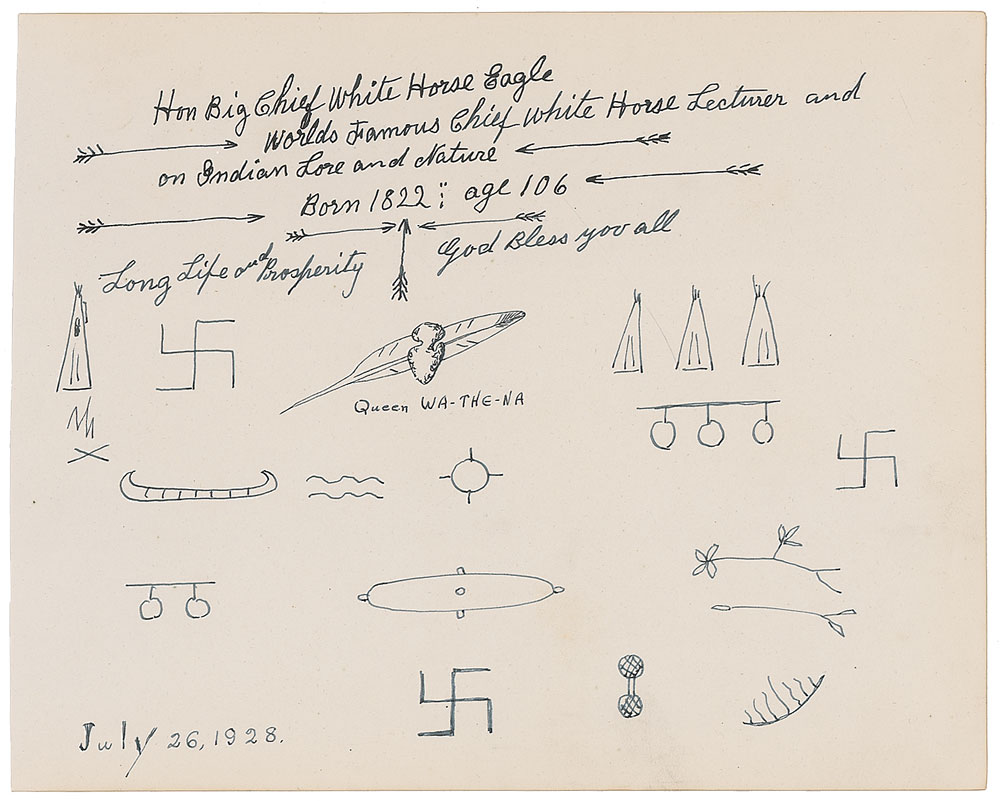 Hon Big Chief White Horse Eagle
Worlds Famous Chief White Horse Lecturer and
on Indian Lore and Nature
Born 1822 : age 106
Long Life and Prosperity
God Bless you all
Queen WA-THE-NA
July 26, 1928.